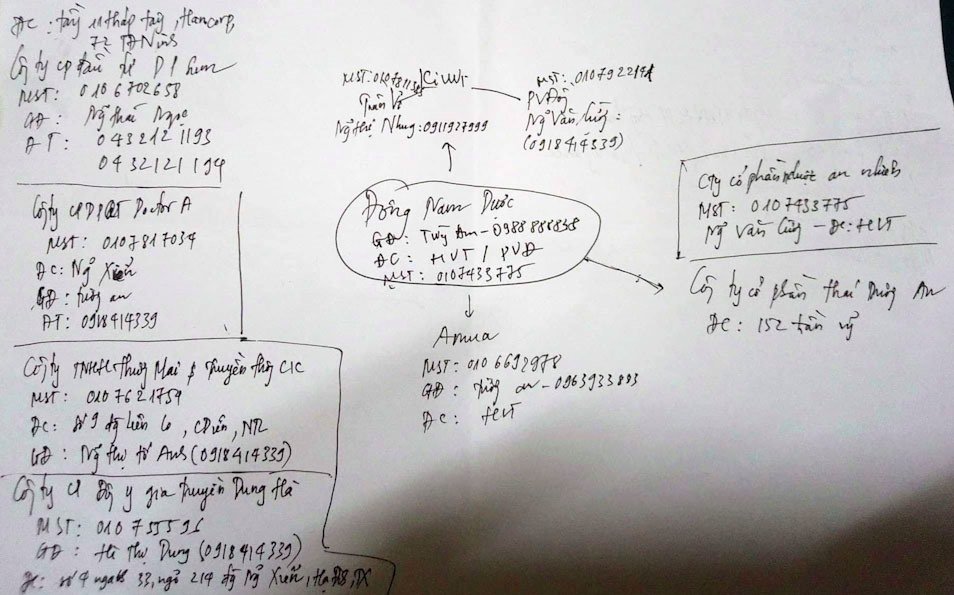 ĐC: tầng 11 tháp tây, Hancorp,
72 TĐN
Công ty cp đầu tư DP
MST: 010 6702658
GĐ: Ng thái Ngọc
ĐT: 0432121193
0432121194
Công ty CPDP QT Doctor A
MST: 0107817034
ĐC: Ng Xiển
GĐ: tường an
ĐT: 0918414339
Công ty TNHH Thương Mại & Truyền thông CIC
MST: 0107621759
ĐC: số 9 liên cơ, CDiễn, NTL
GĐ: Ng thị tố Anh (0918414339)
Công ty CP Đông y gia truyền Dung Hà
MST: 010755596
GĐ: Hà Thị Dung (0918414339)
ĐC: số 4 ngách 33, ngõ 214 Ng Xiển, Hạ Đ, TX
MST:
Trần Vỹ
Ng thị Nhung: 0911927999
MST:
PVĐồng
Ng Văn Cường:
(0918414339)
Đông Nam Dược
GĐ: Tường An - 0988888888
ĐC: HVT / PVĐ
MST: 0107433775
Amua
MST: 0106692978
GĐ: tường an - 0963933883
ĐC: HVT
Cty cổ phần dược an nhiên
MST: 0107433775
Ng Văn Cường - ĐC: HVT
Công ty cổ phần thái Dương An
ĐC: 152 trần vỹ